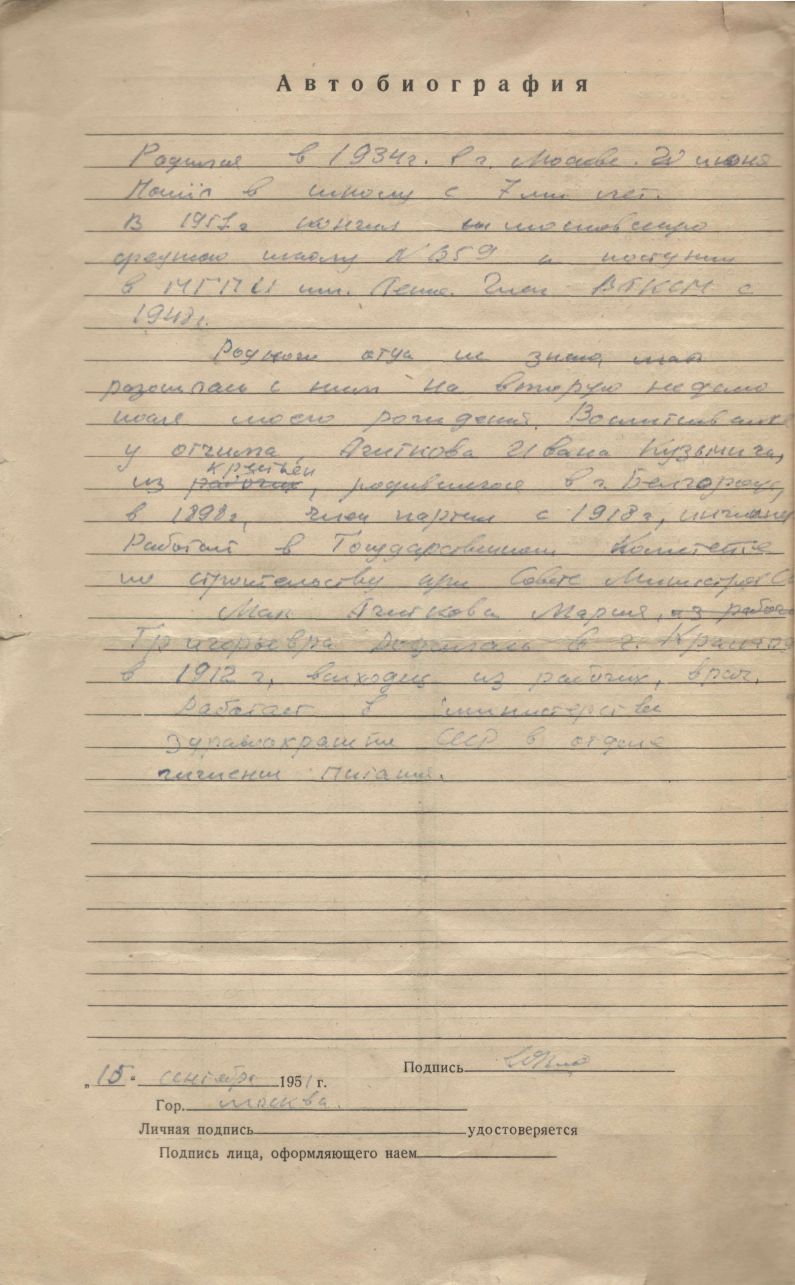 Автобиография
Родился в 1934г. в г. Москве. 20 июня
Пошёл в школу с 7ми лет.
В 1951г кончил московскую
среднюю школу N 359 и поступил
в МГПИ им. Ленина. Член ВЛКСМ с
1948г.
Родного отца не знаю, мать
разошлась с ним на вторую неделю
после моего рождения. Воспитывался
у отчима, Ивана Кузьмича,
крестьян
из рабочих, родившегося в г. Белгороде,
в 1898г, член партии с 1918г, инженер
Работает в Государственном Комитете
по строительству при Совете Министров
Мать Мария, из рабочих
Григорьевна родилась в г.
в 1912 г, выходец из рабочих, врач.
Работает в министерстве
здравоохранения СССР в отделе
гигиены питания.
Подпись
„15“ сентября 1951 г.
Гор. Москва.
Личная подпись удостоверяется
Подпись лица, оформляющего наем